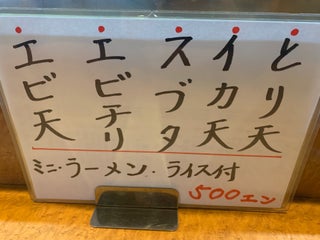 とり天
イカ天
スブタ
エビチリ
エビ天
ミニ・ラーメン・ライス付
500エン